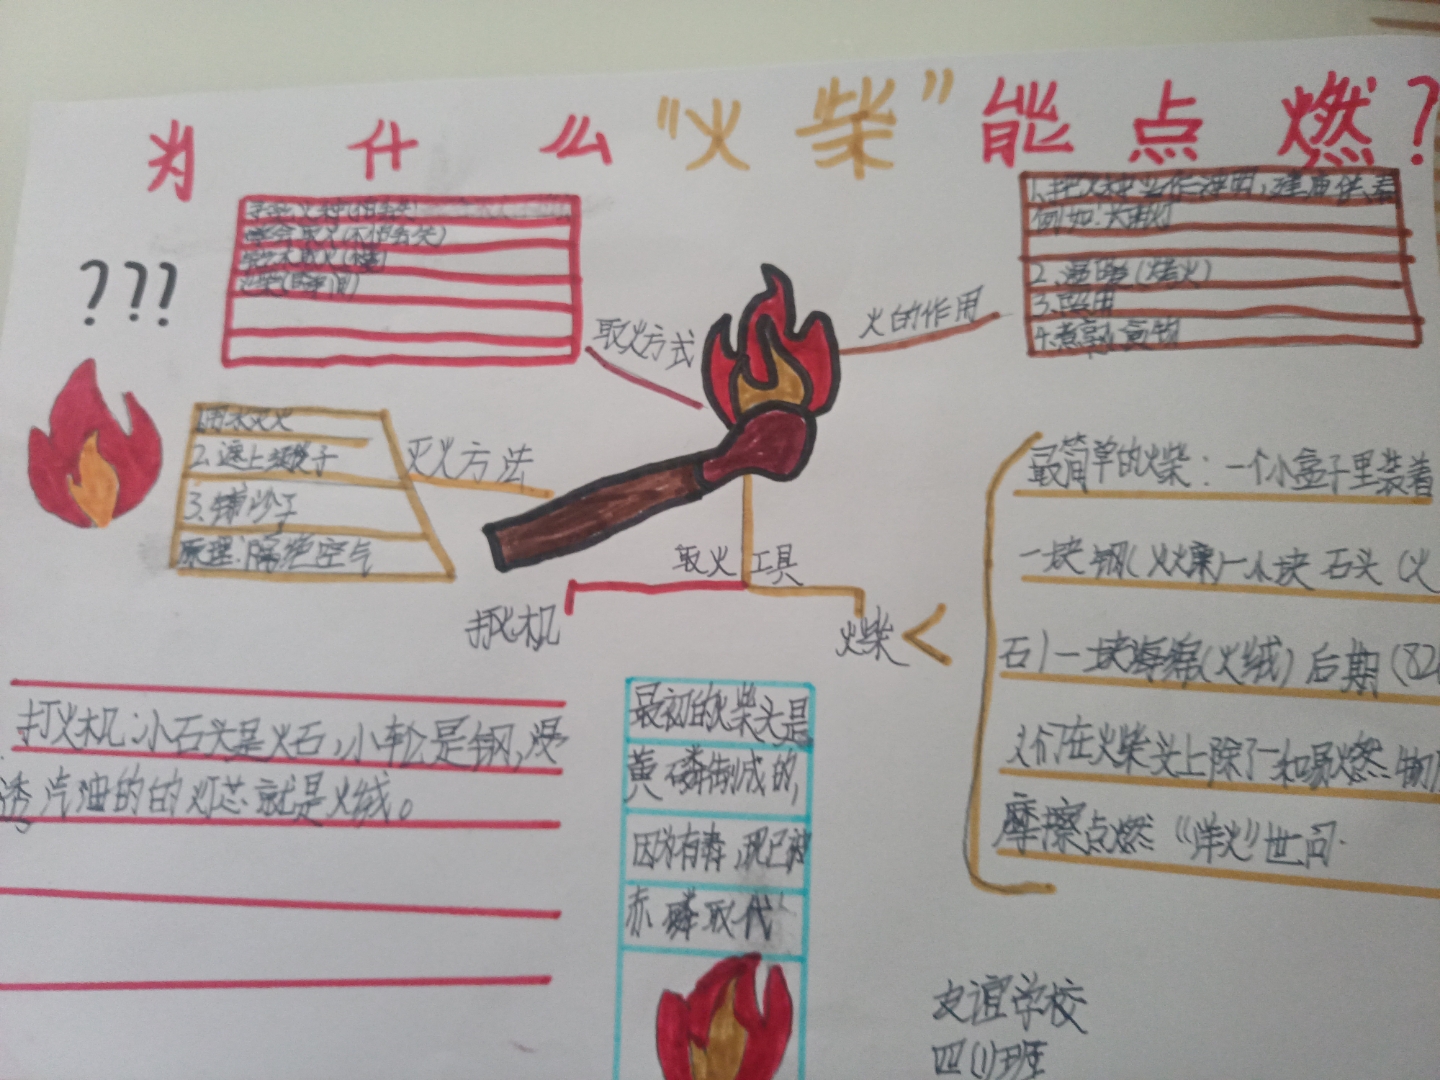 为什么“火柴”能点燃？
(不怕丢失)
钻木取火(慢)
火柴(瞬间)
取火方式
???
火的作用
例如:
2.温暖(烤火)
3.照明
4.煮熟食物
1.用水灭火
2.盖上被子
3.铺沙子
原理:隔绝空气
灭火方法
取火工具
打火机
火柴
最简单的火柴：一个小盒子里装着
一块钢(火镰)一小块石头(火
石)一块海绵(火绒)后期(82
人们在火柴头上除了一和易燃物
摩擦点燃“洋火”世问.
打火机:小石头是火石,小轮是钢,浸
透汽油的的灯芯就是火绒。
最初的火柴头是
黄磷制成的,
因为有毒,现已被
赤磷取代
友谊学校
四(1)班